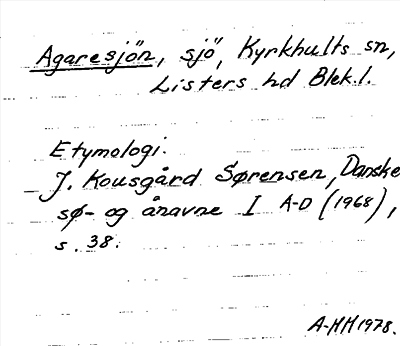 Agaresjön, sjö, Kyrkhults sn,
Listers hd Blek.l.
Etymologi:
J. Kousgård Sørensen, Danske
sø- og ånavne I A-D (1968),
s. 38.
A-MH 1978.